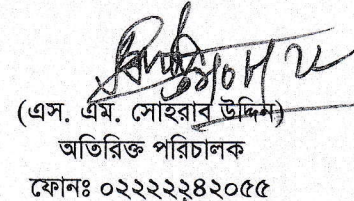 (এস. এম. সোহরাব উদ্দিন)
অতিরিক্ত পরিচালক
ফোনঃ ০২২২২২৪২০৫৫